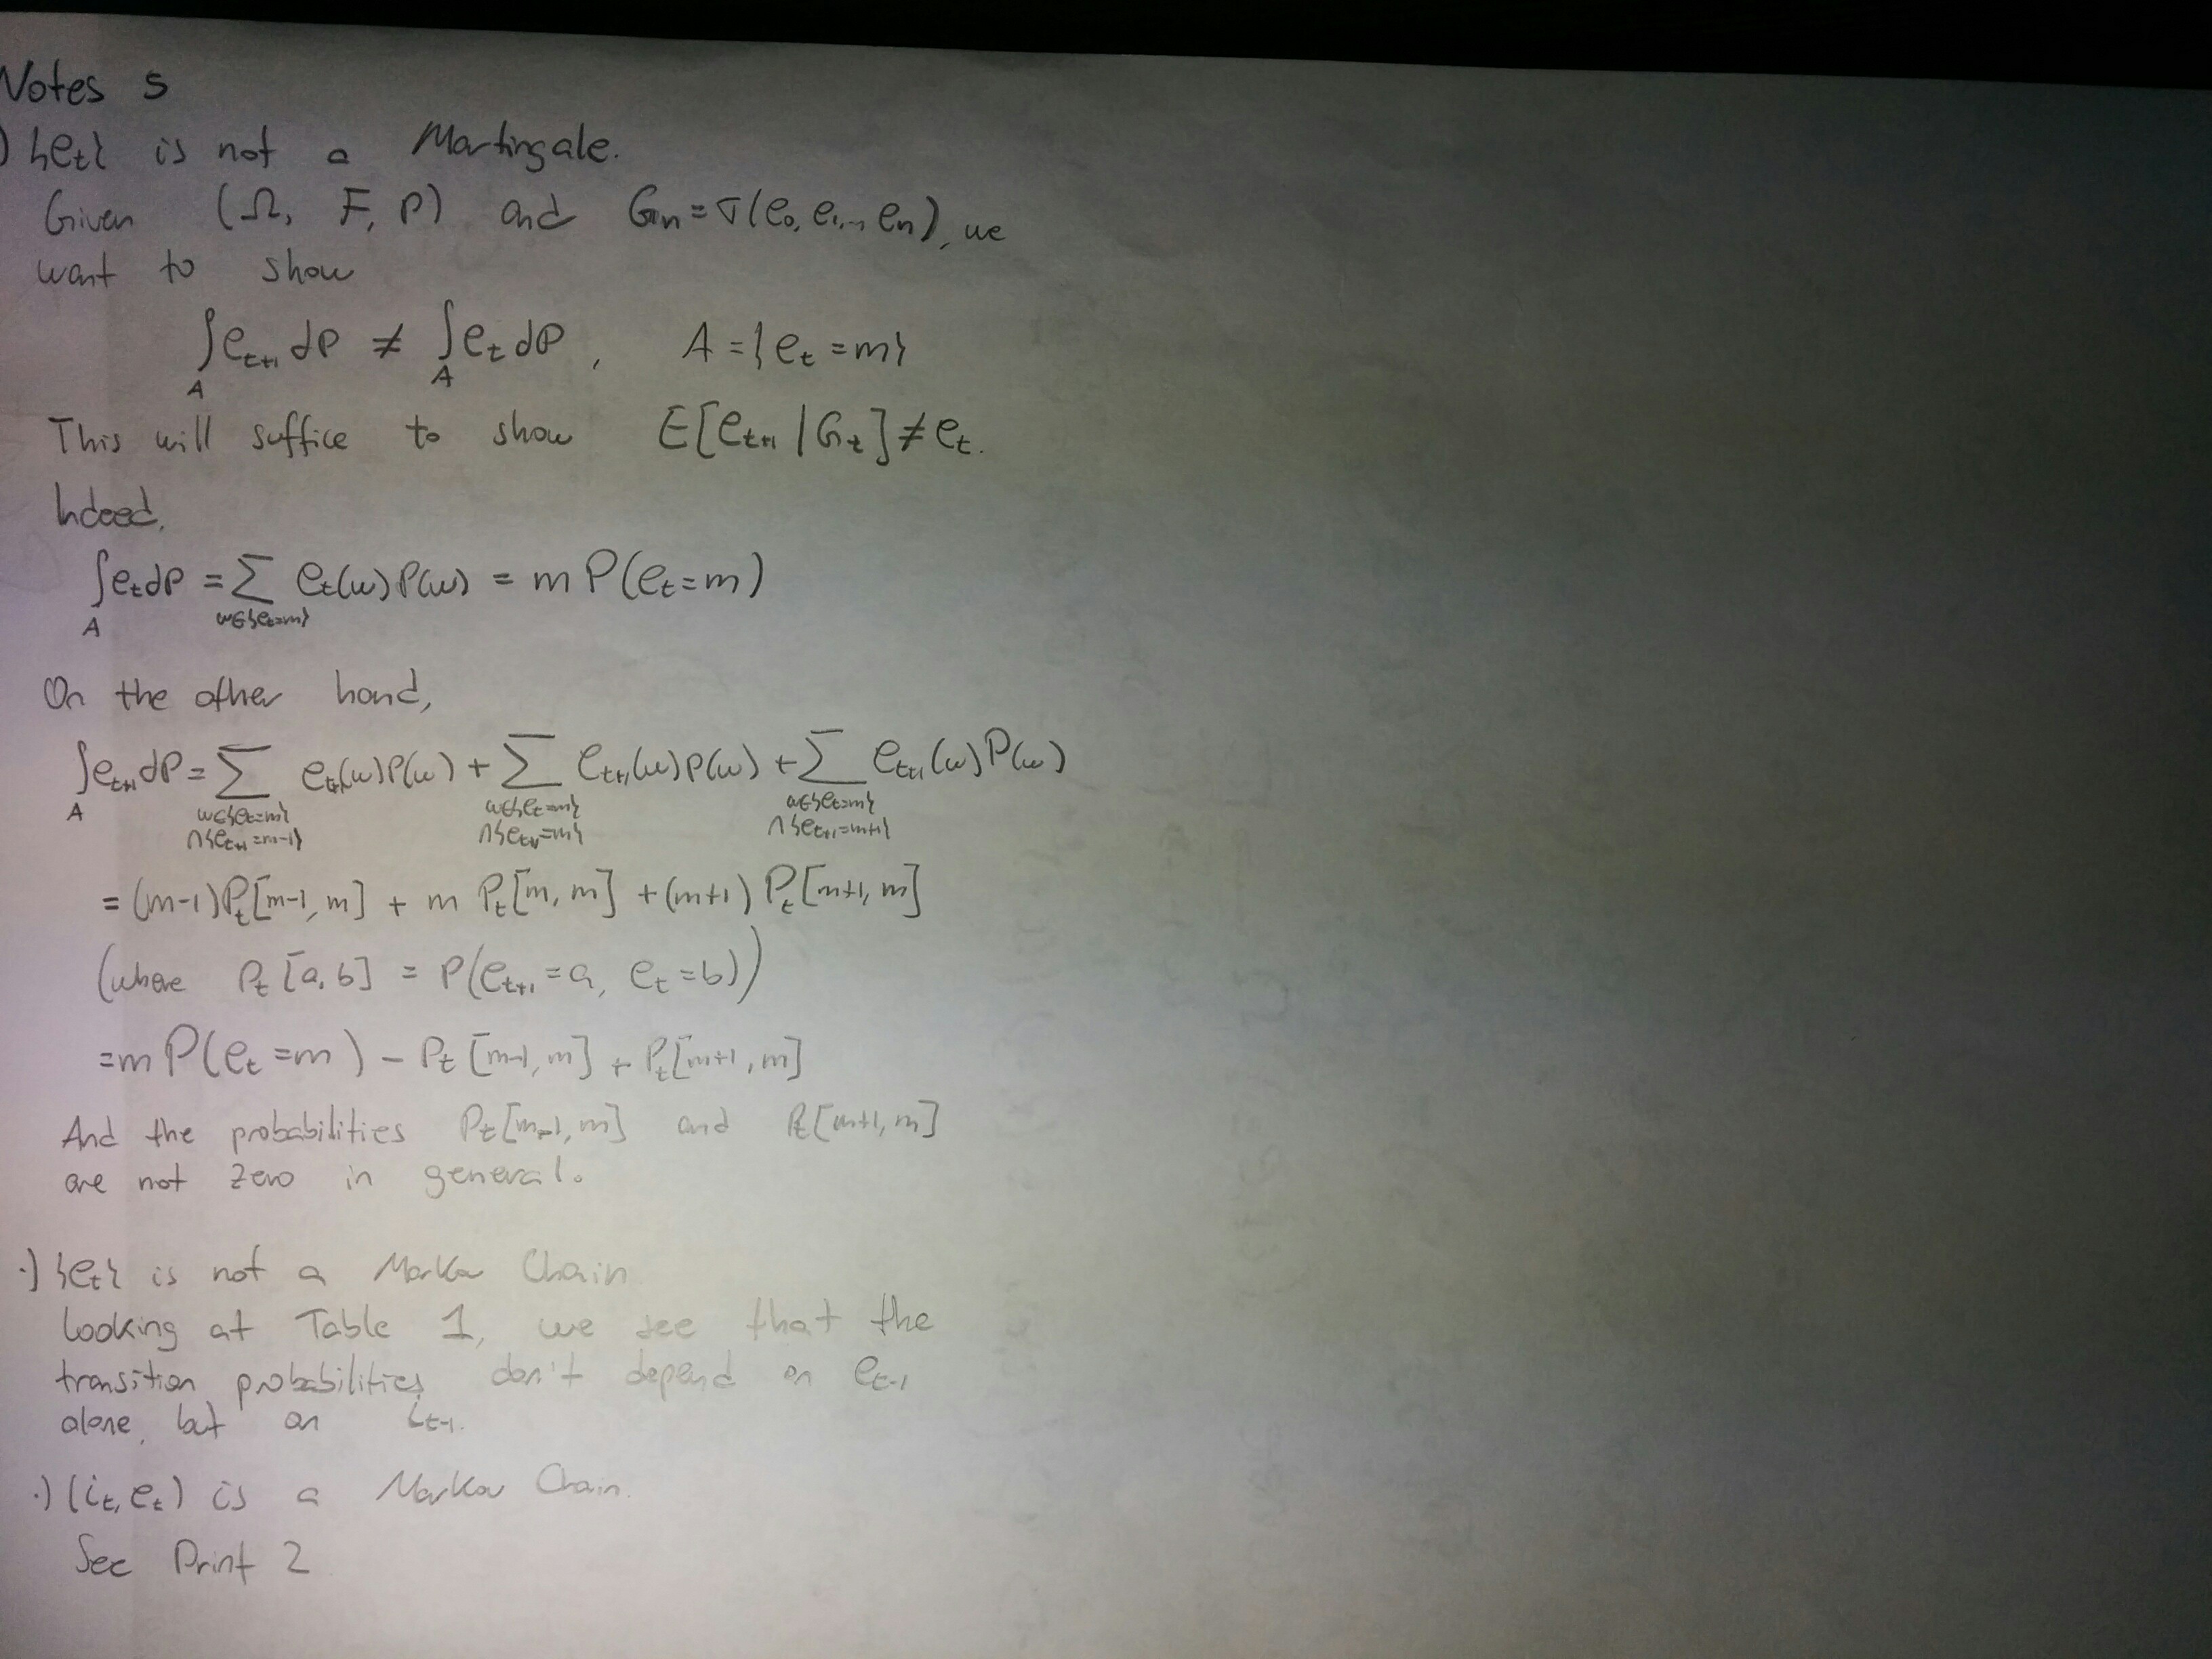 Notes 5
) {e_t} is not a Martingale.
Given (Ω, F, P) and G_n = σ(e_0, e_1, .., e_n), we
want to show
∫_A e_{t+1} dP ≠ ∫_A e_t dP , A = {e_t = m}
This will suffice to show E[e_{t+1} | G_t] ≠ e_t.
Indeed,
∫_A e_t dP = Σ_{ω∈{e_t=m}} e_t(ω)P(ω) = m P(e_t = m)
On the other hand,
∫_A e_{t+1} dP = Σ_{ω∈{e_t=m} ∩{e_{t+1}=m-1}} e_{t+1}(ω)P(ω) + Σ_{ω∈{e_t=m} ∩{e_{t+1}=m}} e_{t+1}(ω)P(ω) + Σ_{ω∈{e_t=m} ∩{e_{t+1}=m+1}} e_{t+1}(ω)P(ω)
= (m-1)P_t[m-1, m] + m P_t[m, m] + (m+1) P_t[m+1, m]
(where P_t[a, b] = P(e_{t+1} = a, e_t = b))
= m P(e_t = m) - P_t[m-1, m] + P_t[m+1, m]
And the probabilities P_t[m-1, m] and P_t[m+1, m]
are not zero in general.
·) {e_t} is not a Markov Chain
looking at Table 1, we see that the
transition probabilities don't depend on e_{t-1}
alone, but on i_{t-1}.
·) (i_t, e_t) is a Markov Chain.
See Print 2